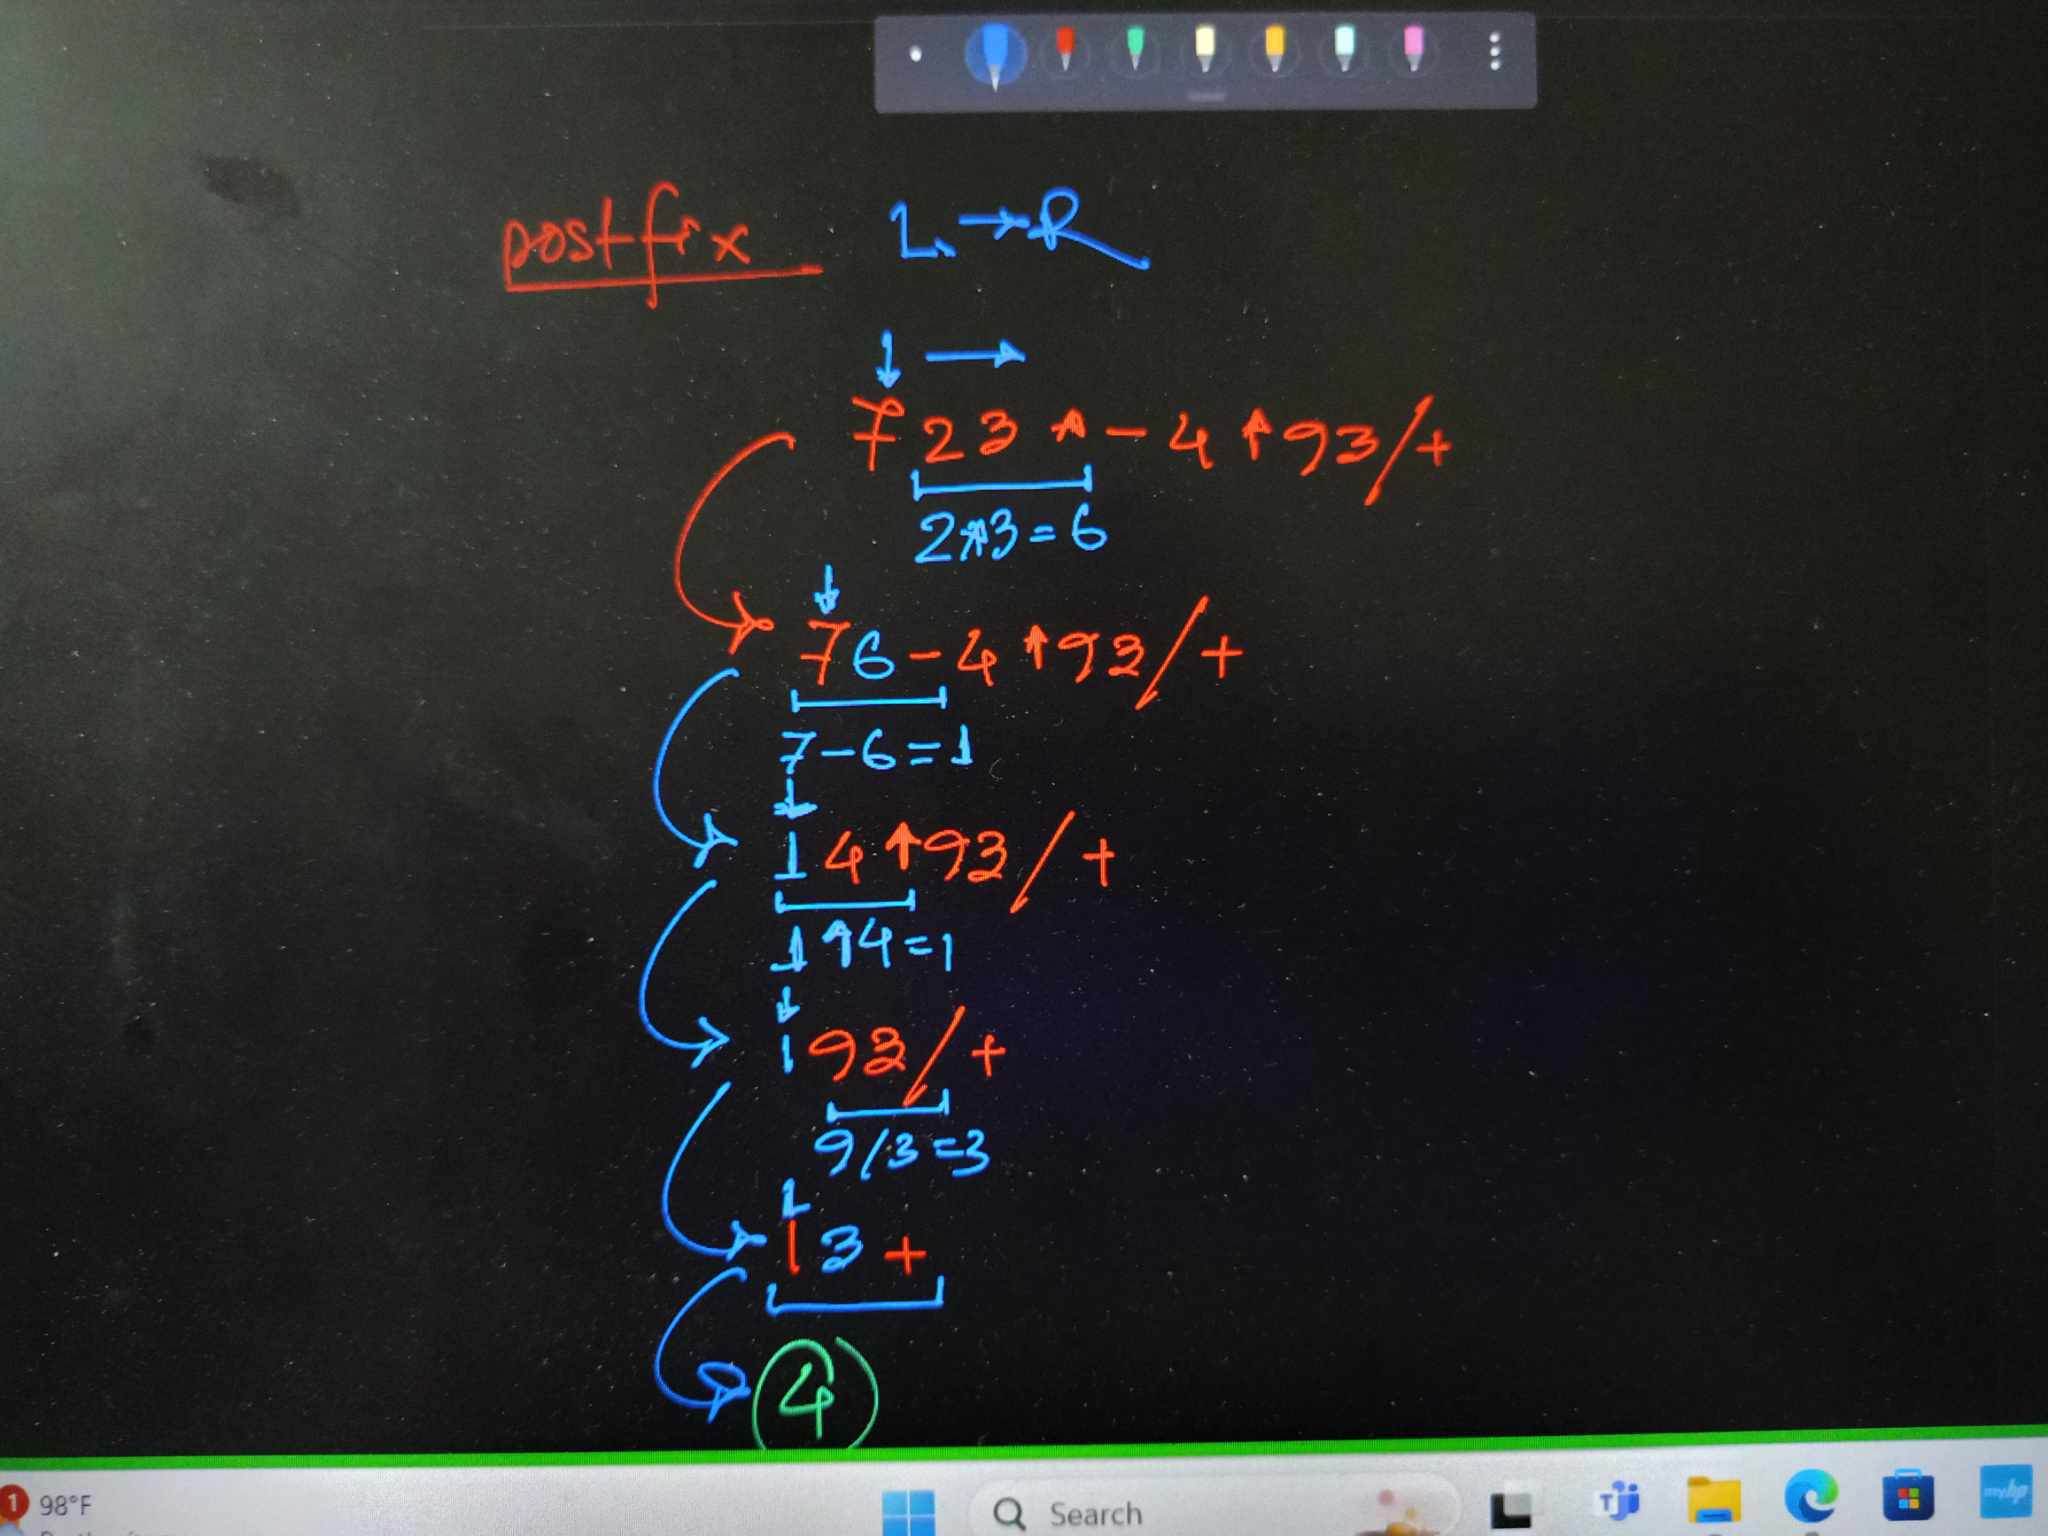 postfix L → R
↓ →
7 2 3 * - 4 ↑ 9 3 / +
2*3=6
↓
7 6 - 4 ↑ 9 3 / +
7-6=1
↓
1 4 ↑ 9 3 / +
1↑4=1
↓
1 9 3 / +
9/3=3
↓
1 3 +
4
1 98°F
Search
myhp